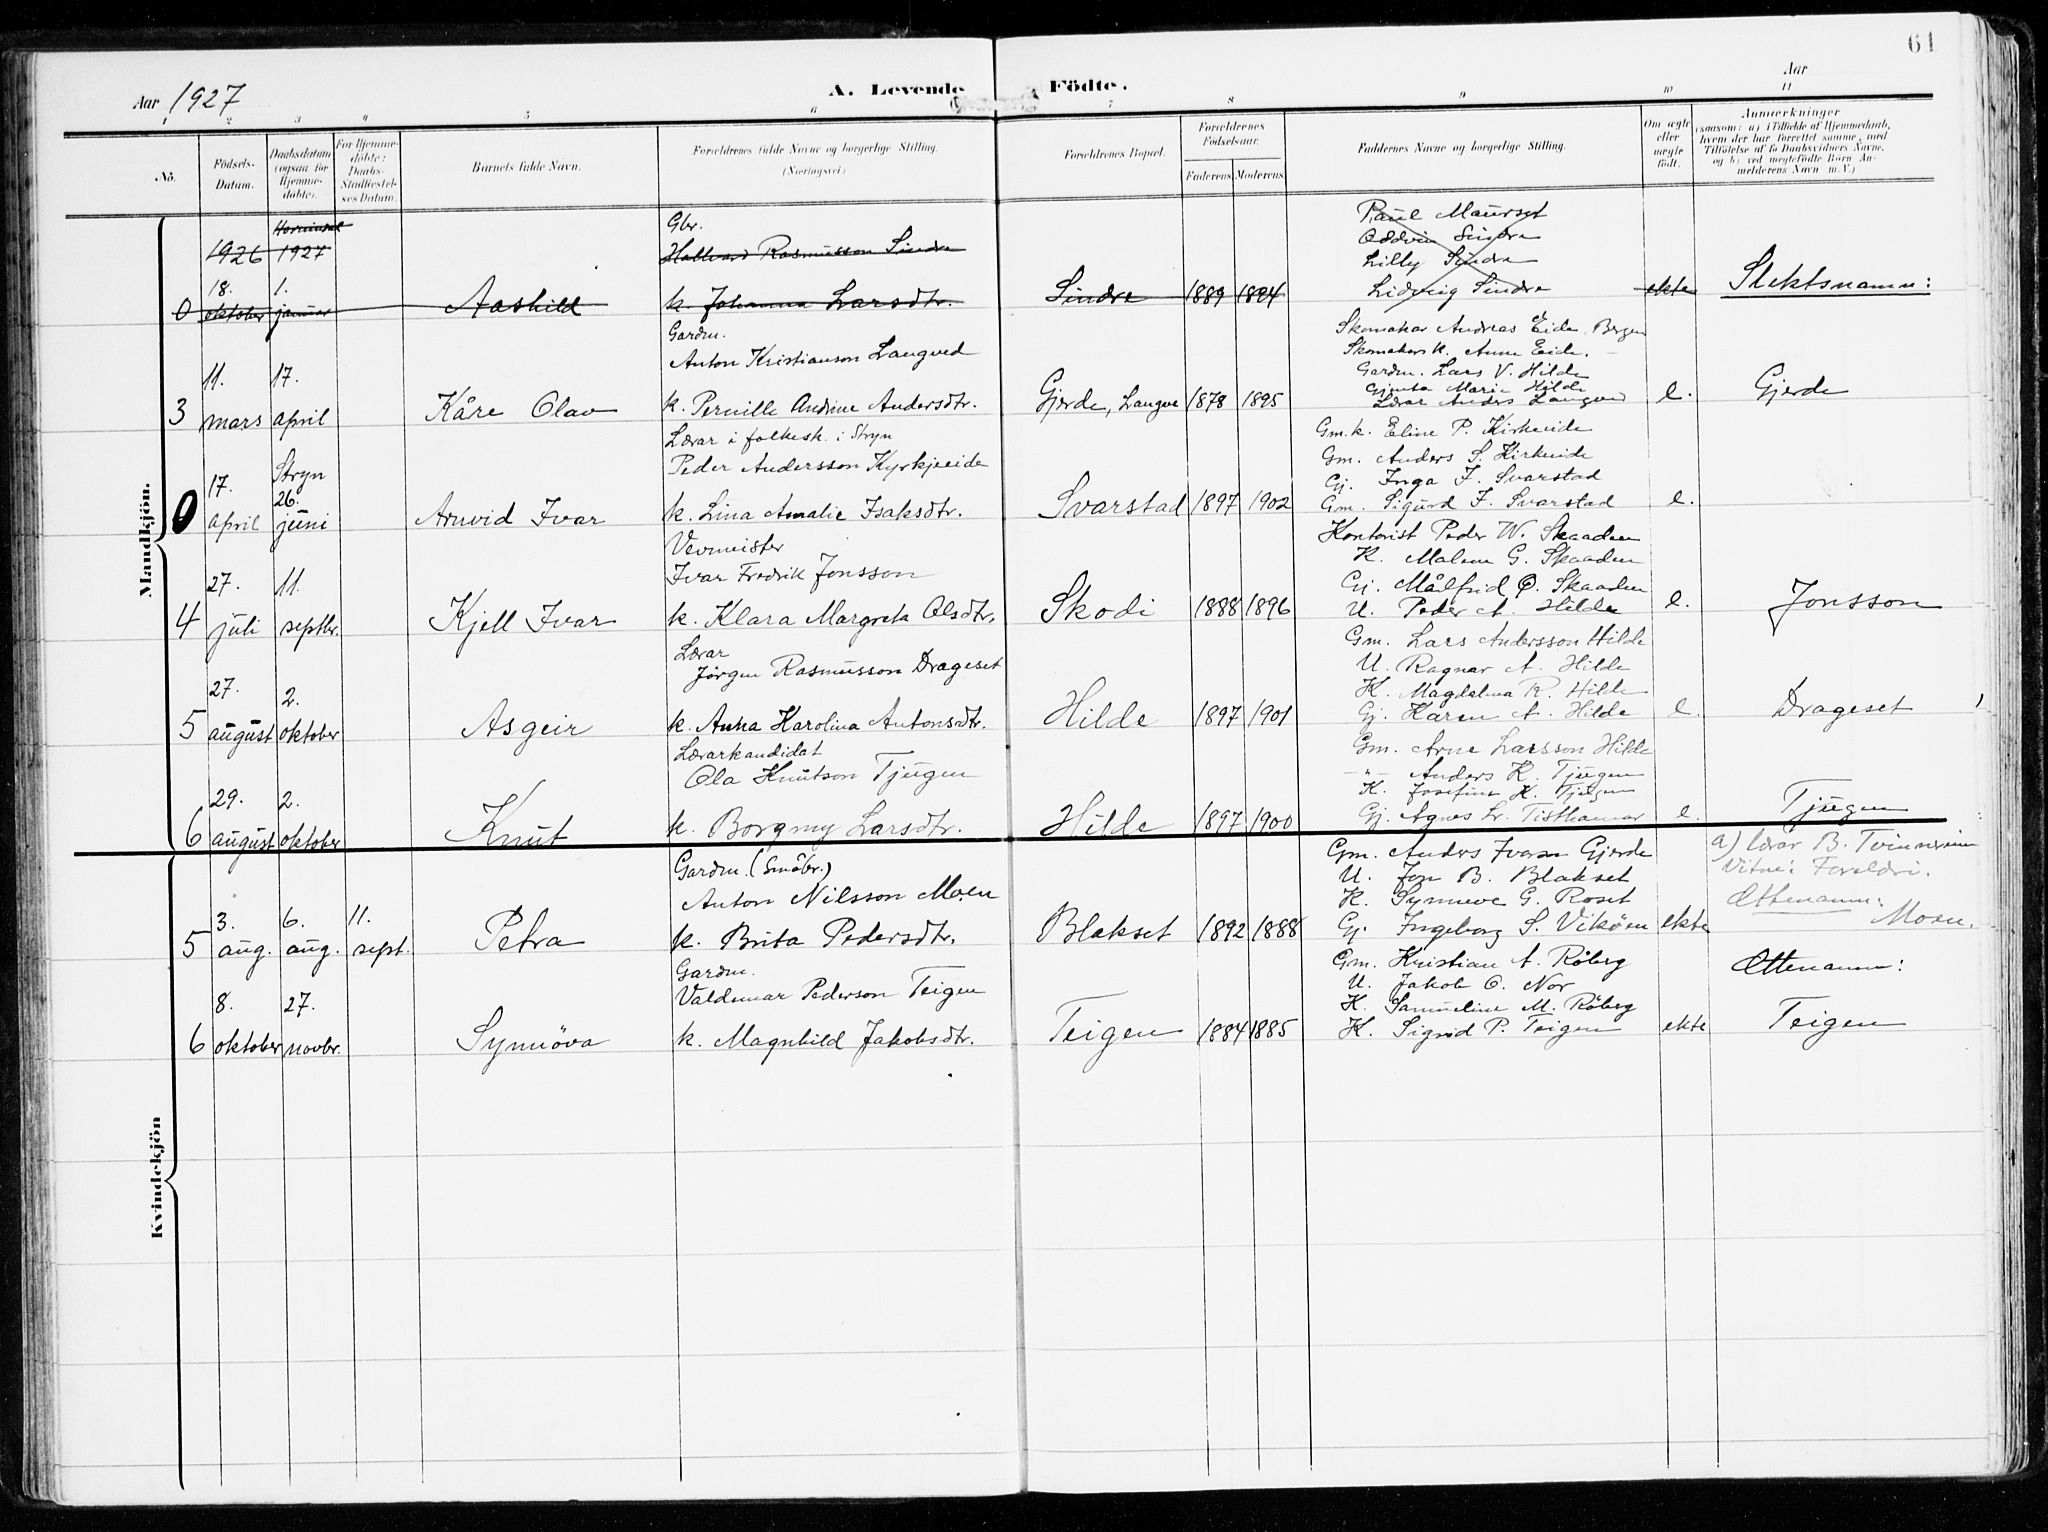 61
Aar 1927
A. Levende
Födte.
Aar
1 2 3 4 5 6 7 8 9 10 11
No.
Födsels-Datum.
Daabsdatum (ogsaa for Hjemme-döbte).
For Hjemme-döbte: Daabs-Stadfæstel-ses Datum.
Barnets fulde Navn.
Forældrenes fulde Navne og borgerlige Stilling.
(Næringsvei)
Forældrenes Bopæl.
Forældrenes Födselsaar.
Faderens Moderens
Faddernes Navne og borgerlige Stilling.
Om ægte eller uægte födt.
Anmærkninger
(saasom: a) i Tilfælde af Hjemmedaab, hvem der har forrettet samme, med Tilföielse af to Daabsvidners Navne, og b) ved uægtefödte Börn An-melderens Navn m.V.)
Mandkjön.
Hornindal
1926 1927
18. 1.
0 oktober januar
Aashild
Gbr.
Hallvard Rasmusson Sindre
k. Johanna Larsdtr.
Sindre 1889 1894
Paul Maurset
Oddvin Sindre
Lilly Sindre
Lidvrig Sindre
ekte
Slektsnamn:
11. 17.
3 mars april
Kåre Olav
Gardm.
Anton Kristianson Langved
k. Pernille Andrine Andersdtr.
Gjerde, Langve 1878 1895
Skomakar Andreas Eide, Bergen
Skomakark. Anne Eide. –
Gardm. Lars V. Hilde
Gjenta Marie Hilde
Lærar Anders Langved
e.
Gjerde
Stryn
17. 26.
0 april juni
Arnvid Ivar
Lærar i folkesk. i Stryn
Peder Andersson Kyrkjeeide
k. Lina Amalie Isaksdtr.
Svarstad 1897 1902
Gm. k. Eline P. Kirkeide
Gm. Anders S. Kirkeide
Gj. Inga I. Svarstad
Gm. Sigurd I. Svarstad
e.
27. 11.
4 juli septbr.
Kjell Ivar
Vevmeister
Ivar Fredrik Jonsson
k. Klara Margreta Olsdtr.
Skodi 1888 1896
Kontorist Peder W. Skaaden
K. Malene G. Skaaden
Gj. Målfrid P. Skaaden
U. Peder A. Hilde
e.
Jonsson
27. 2.
5 august oktober
Asgeir
Lærar
Jörgen Rasmusson Drageset
k. Anna Karolina Antonsdtr.
Hilde 1897 1901
Gm. Lars Andersson Hilde
U. Ragnar A. Hilde
K. Magdalena R. Hilde
Gj. Karen A. Hilde
e.
Drageset
29. 2.
6 august oktober
Knut
Lærarkandidat
Ola Knutson Tjugen
k. Borgny Larsdtr.
Hilde 1897 1900
Gm. Arne Larsson Hilde
-"- Anders K. Tjugen
K. Josefine K. Tjugen
Gj. Agnes Lr. Tisthamar
e.
Tjugen
Kvindekjön
3. 6. 11.
5 aug. aug. sept.
Petra
Gardm. (Småbr.)
Anton Nilsson Moen
k. Brita Pedersdtr.
Blakset 1892 1888
Gm. Anders Iverson Gjerde
U. Jon B. Blakset
K. Synneve G. Roset
Gj. Ingeborg S. Vikören
ekte
a) lærar B. Tvinnereim
Vitne: Foreldri.
Ættenamn:
Moen.
8. 27.
6 oktober novbr.
Synnöva
Gardm.
Valdemar Pederson Teigen
k. Magnhild Jakobsdtr.
Teigen 1884 1885
Gm. Kristian A. Röberg
U. Jakob O. Nor
K. Samueline M. Röberg
K. Sigrid P. Teigen
ekte
Ættenamn:
Teigen